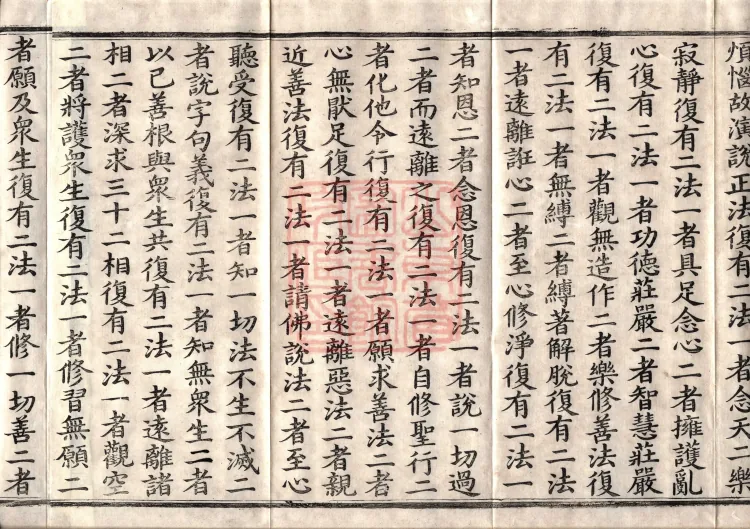 煩惱故演說正法復有二法一者念天二樂
寂靜復有二法一者具足念心二者擁護亂
心復有二法一者功德莊嚴二者智慧莊嚴
復有二法一者觀無造作二者樂修善法復
有二法一者無縛二者縛著解脫復有二法
一者遠離誑心二者至心修淨復有二法一
者知恩二者念恩復有二法一者說一切過
二者而遠離之復有二法一者自修聖行二
者化他令行復有二法一者願求善法二者
心無猒足復有二法一者遠離惡法二者親
近善法復有二法一者請佛說法二者至心
聽受復有二法一者知一切法不生不滅二
者說字句義復有二法一者知無眾生二者
以己善根與眾生共復有二法一者遠離諸
相二者深求三十二相復有二法一者觀空
二者將護眾生復有二法一者修習無願二
者願及眾生復有二法一者修一切善二者